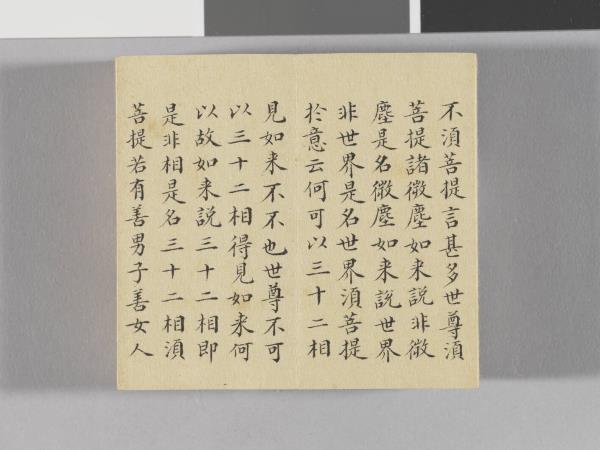 不須菩提言甚多世尊須
菩提諸微塵如来說非微
塵是名微塵如来說世界
非世界是名世界須菩提
於意云何可以三十二相
見如来不不也世尊不可
以三十二相得見如来何
以故如来説三十二相即
是非相是名三十二相須
菩提若有善男子善女人